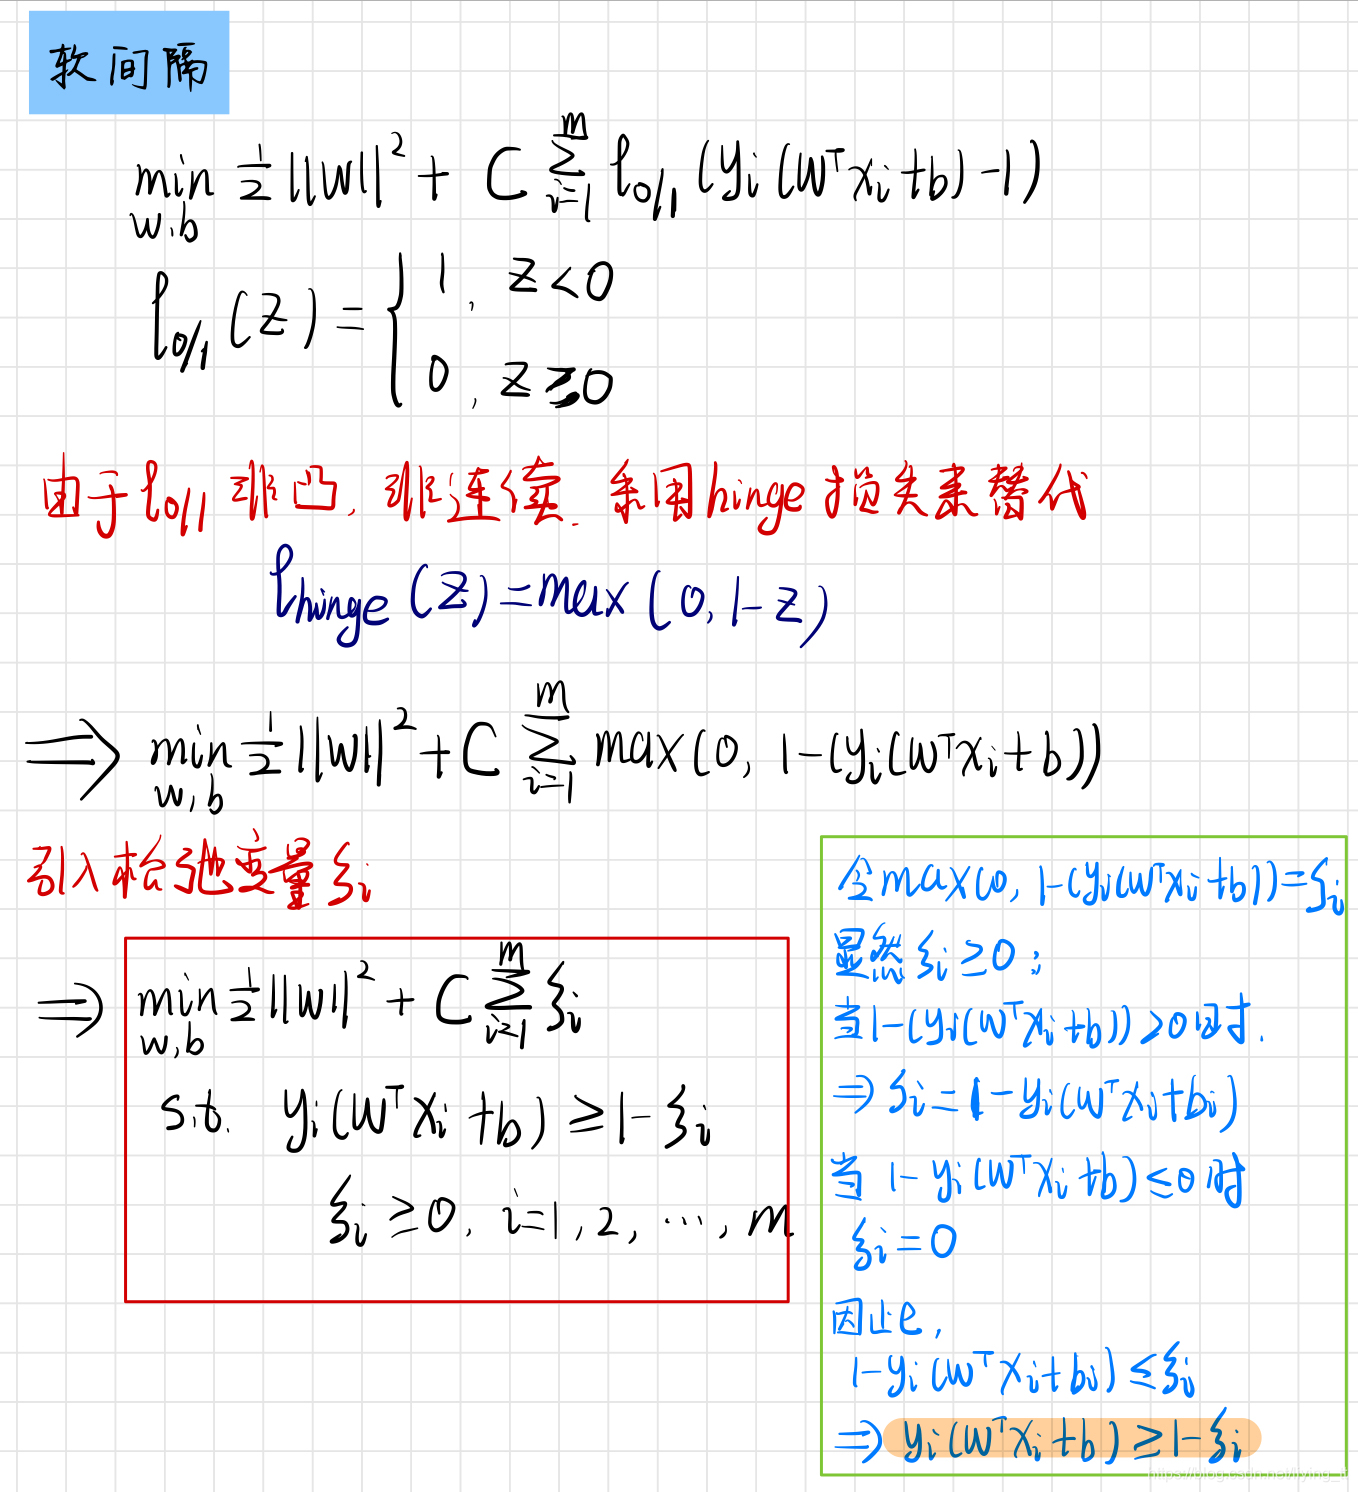 软间隔
min w,b 1/2 ||w||² + C Σ_{i=1}^{m} ℓ_{0/1} (y_i (w^T x_i + b) - 1)
ℓ_{0/1} (z) = { 1, z < 0
0, z ≥ 0
由于 ℓ_{0/1} 非凸, 非连续. 采用 hinge 损失来替代
ℓ_{hinge} (z) = max (0, 1 - z)
⇒ min w,b 1/2 ||w||² + C Σ_{i=1}^{m} max (0, 1 - (y_i (w^T x_i + b))
引入松弛变量 ξ_i
⇒ min w,b 1/2 ||w||² + C Σ_{i=1}^{m} ξ_i
s.t. y_i (w^T x_i + b) ≥ 1 - ξ_i
ξ_i ≥ 0, i = 1, 2, ..., m
令 max (0, 1 - (y_i (w^T x_i + b)) = ξ_i
显然 ξ_i ≥ 0;
当 1 - (y_i (w^T x_i + b)) > 0 时.
⇒ ξ_i = 1 - y_i (w^T x_i + b_i)
当 1 - y_i (w^T x_i + b) ≤ 0 时
ξ_i = 0
因此,
1 - y_i (w^T x_i + b_i) ≤ ξ_i
⇒ y_i (w^T x_i + b) ≥ 1 - ξ_i